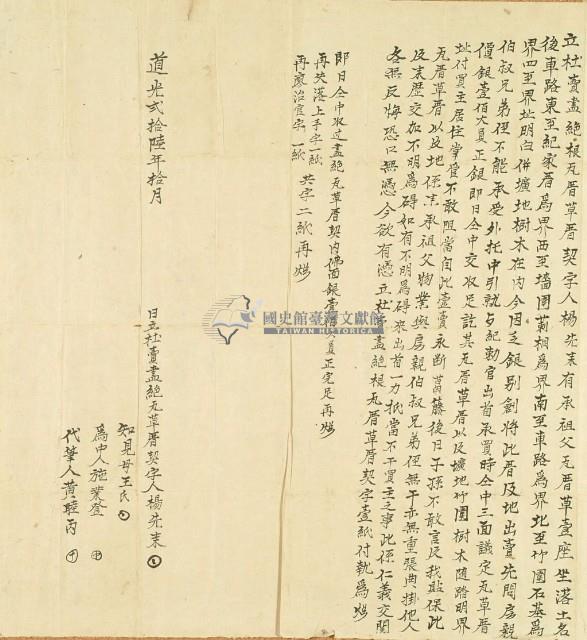 立杜賣盡絕根瓦厝草厝契字人楊先來有承祖父瓦厝草厝壹座坐落土名
後車路東至紀家厝為界西至墻圍莿桐為界南至車路為界北至竹圍石墓為
界四至界址明白併壙地樹木在內今因乏銀別創將此厝及地出賣先問房親
伯叔兄弟侄不能承受外托中引就与紀勅官出首承買時仝中三面議定瓦草厝
價銀壹佰大員正銀即日仝中交收足訖其瓦厝草厝以及壙地竹圍樹木隨踏明界
址付買主居住掌管不敢阻當自此壹賣永斷葛藤後日子孫不敢言及我貼保此
瓦厝草厝以及地係來承祖父物業與房親伯叔兄弟侄無干亦無重張典掛他人
及來歷交加不明為碍如有不明為碍來出首一力抵當不干買主之事此係仁義交關
各無反悔恐口無憑今欲有憑立杜賣盡絕根瓦厝草厝契字壹紙付執為炤
即日仝中收過盡絕瓦草厝契內佛面銀壹佰大員正完足再炤
再失落上手字一紙
再繳治官字一紙 共字二紙再炤
道光貳拾陸年拾月
日立杜賣盡絕瓦草厝契字人楊先來
知見母王氏
為中人施業登
代筆人黃睦丙
國史館臺灣文獻館
TAIWAN HISTORICA